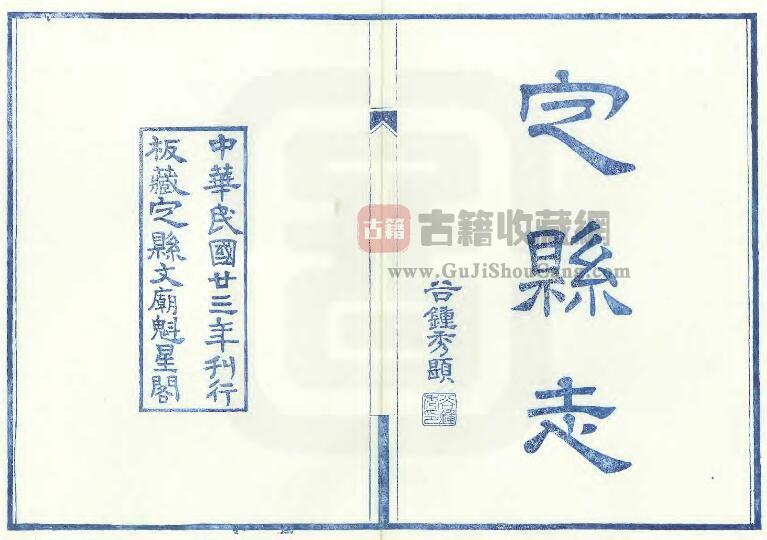 定縣志
谷鍾秀題
古籍
古籍收藏網
www.GuJiShouCang.com
中華民國廿三年刊行
板藏定縣文廟魁星閣